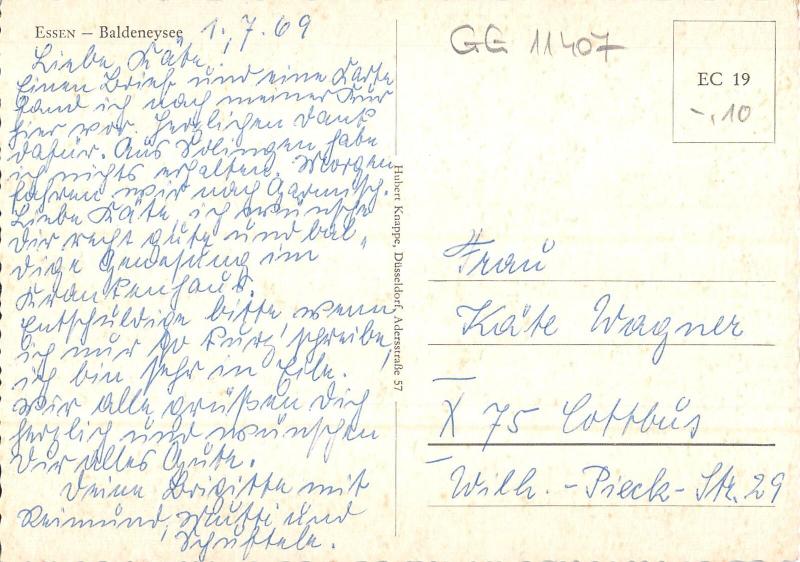 ESSEN — Baldeneysee
1., 7. 69
Liebe Käte.
Einen Brief und eine Karte
fand ich nach meiner Kur
hier vor. Herzlichen Dank
dafür. Aus Solingen habe
ich nichts erhalten. Morgen
fahren wir nach Garmisch.
Liebe Käte, ich wünsche
Dir recht gute und bal„
dige Genesung im
Krankenhaus.
Entschuldige bitte, wenn
ich nur so kurz schreibe,
ich bin sehr in Eile.
Wir alle grüßen Dich
herzlich und wünschen
Dir alles Gute.
Deine Brigitte mit
Reimund, Mutti und
Hubert Knappe, Düsseldorf, Adersstraße 57
GG 11407
EC 19
-,10
Frau
Käte Wagner
X 75 Cottbus
Wilh. -Pieck- Str. 29